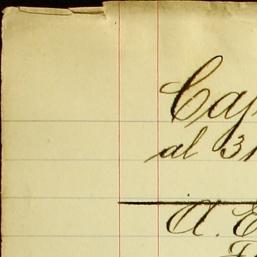 Cap
al 31
A. E